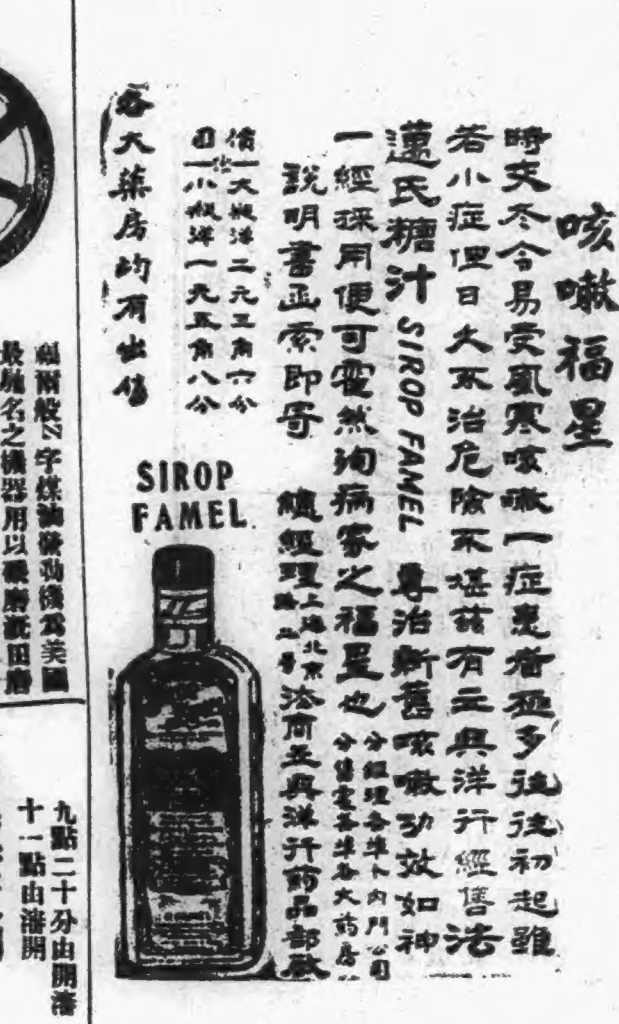 咳嗽福星
時交冬令易受風寒咳嗽一症患者極多往往初起雖
若小症但日久不治危險不堪茲有立興洋行經售法
邁氏糖汁 SIROP FAMEL 專治新舊咳嗽功效如神
一經採用便可霍然洵病家之福星也
分經理各埠卜內門公司
分售處各埠各大药房
說明書函索即寄
總經理上海北京路
法商立興洋行葯品部啟
價一大瓶洋二元三角六分
目一小瓶洋一元五角八分
各大藥房均有出售
SIROP
FAMEL
字煤油發動機為美國
最馳名之機器用以
九點二十分由開
十一點由滬開